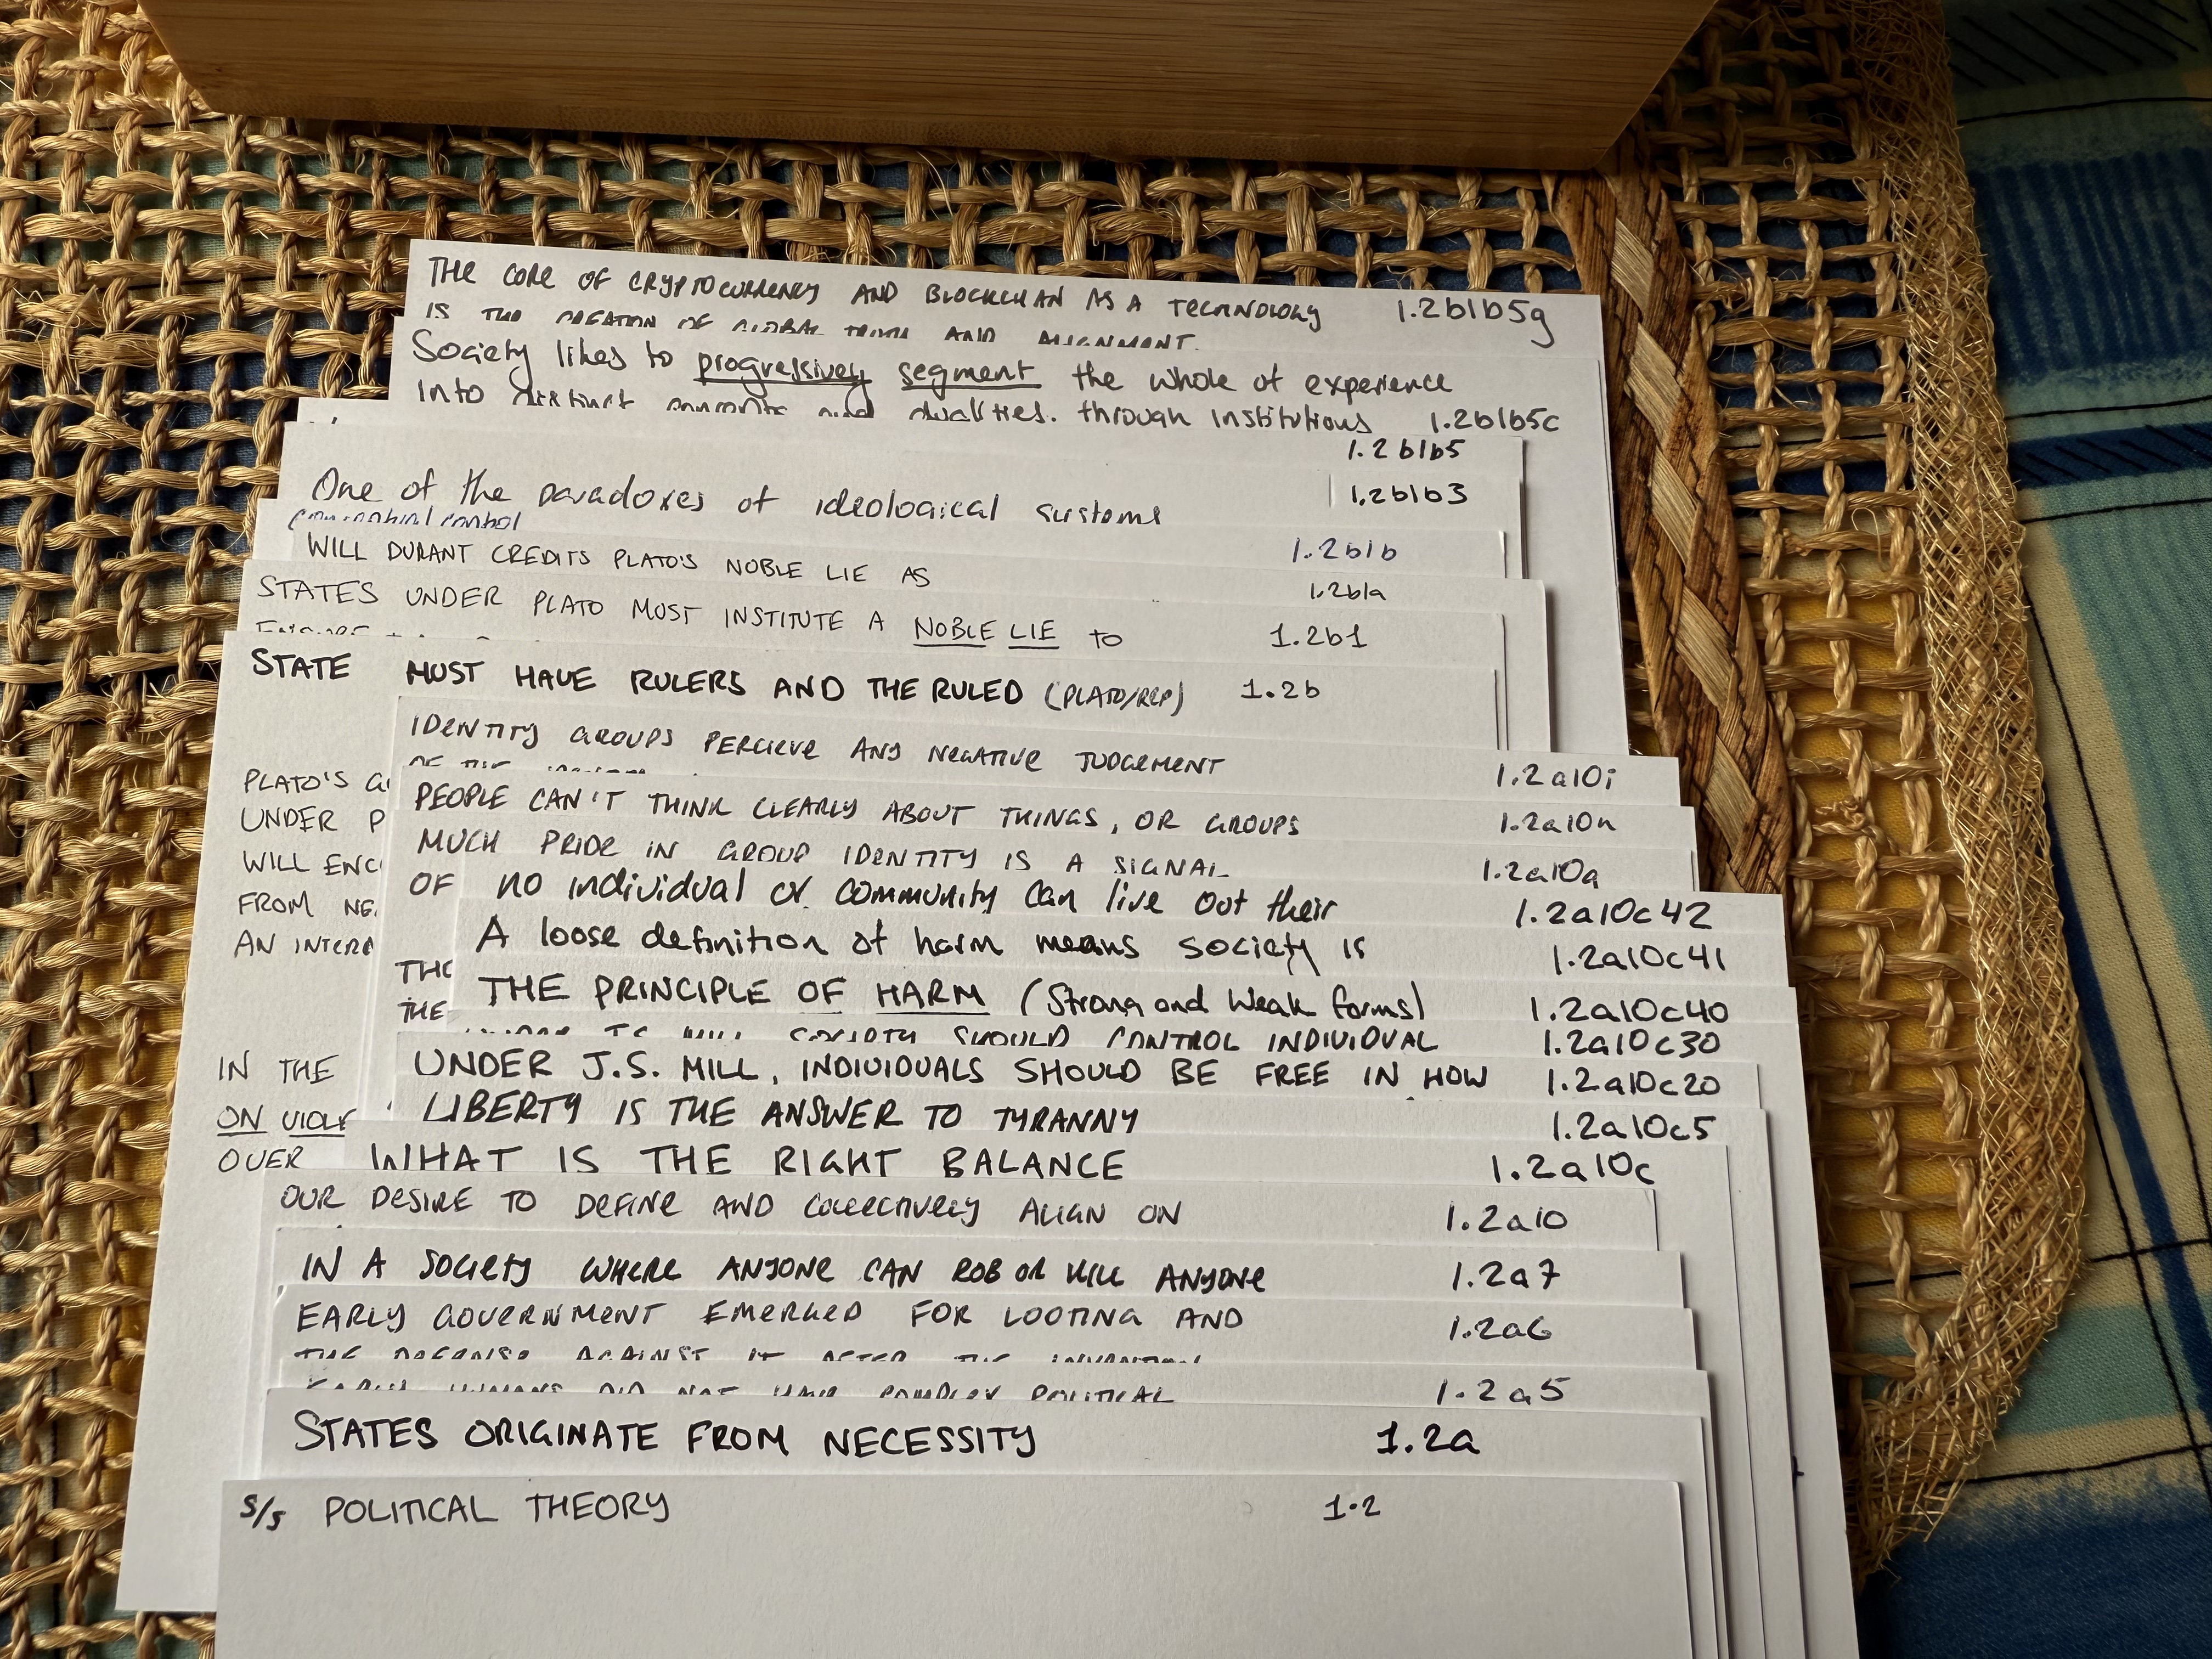 THE CORE OF CRYPTOCURRENCY AND BLOCKCHAIN AS A TECHNOLOGY 1.2b1b5g
IS THE CREATION OF GLOBAL TRUTH AND ALIGNMENT.
Society likes to progressively segment the whole of experience
into distinct concepts and dualities. through institutions 1.2b1b5c
1.2b1b5
One of the paradoxes of ideological systems 1.2b1b3
conceptual control 1.2b1b
WILL DURANT CREDITS PLATO'S NOBLE LIE AS 1.2b1a
STATES UNDER PLATO MUST INSTITUTE A NOBLE LIE TO 1.2b1
ENSURE
STATE MUST HAVE RULERS AND THE RULED (PLATO/REP) 1.2b
IDENTITY GROUPS PERCIEVE ANY NEGATIVE JUDGEMENT 1.2a10i
OF THE
PLATO'S
PEOPLE CAN'T THINK CLEARLY ABOUT THINGS, OR GROUPS 1.2a10n
UNDER P
MUCH PRIDE IN GROUP IDENTITY IS A SIGNAL 1.2a10a
WILL ENC
OF
no individual or community can live out their 1.2a10c42
FROM NE
A loose definition of harm means society is 1.2a10c41
AN INTERE
THE
THE PRINCIPLE OF HARM (Strong and Weak forms) 1.2a10c40
THE
UNDER J.S. MILL SOCIETY SHOULD CONTROL INDIVIDUAL 1.2a10c30
IN THE
UNDER J.S. MILL, INDIVIDUALS SHOULD BE FREE IN HOW 1.2a10c20
ON VIOLE
LIBERTY IS THE ANSWER TO TYRANNY 1.2a10c5
OVER
WHAT IS THE RIGHT BALANCE 1.2a10c
OUR DESIRE TO DEFINE AND COLLECTIVELY ALIGN ON 1.2a10
IN A SOCIETY WHERE ANYONE CAN ROB OR KILL ANYONE 1.2a7
EARLY GOVERNMENT EMERGED FOR LOOTING AND 1.2a6
THE DEFENSE AGAINST IT AFTER THE INVENTION
EARLY HUMANS DID NOT HAVE COMPLEX POLITICAL 1.2a5
STATES ORIGINATE FROM NECESSITY 1.2a
S/S POLITICAL THEORY 1.2